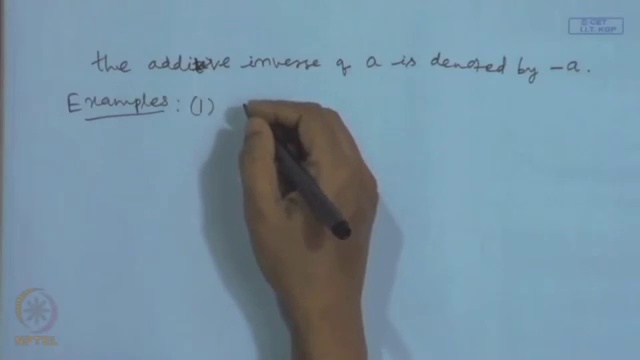 © CET
I.I.T. KGP
the additive inverse of a is denoted by -a.
Examples: (1)
NPTEL